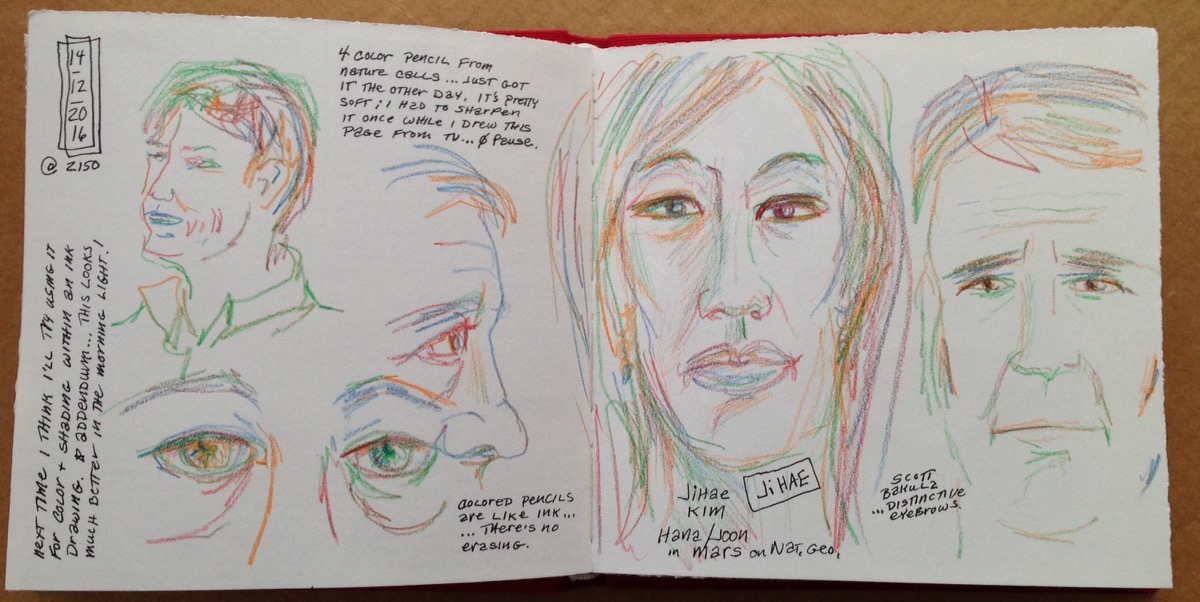 14
12
20
16
@ 2150
4 COLOR PENCIL FROM
NATURE CALLS ... JUST GOT
IT THE OTHER DAY. IT'S PRETTY
SOFT; I HAD TO SHARPEN
IT ONCE WHILE I DREW THIS
PAGE FROM TV... Ø PAUSE.
NEXT TIME I THINK I'LL TRY USING IT
FOR COLOR + SHADING WITHIN AN INK
DRAWING. ADDENDUM... THIS LOOKS
MUCH BETTER IN THE MORNING LIGHT!
COLORED PENCILS
ARE LIKE INK...
... THERE'S NO
ERASING.
JiHae
KIM
JiHAE
Hana/Joon
in Mars on Nat. Geo.
SCOTT
BAKULA
...DISTINCTIVE
EYEBROWS.